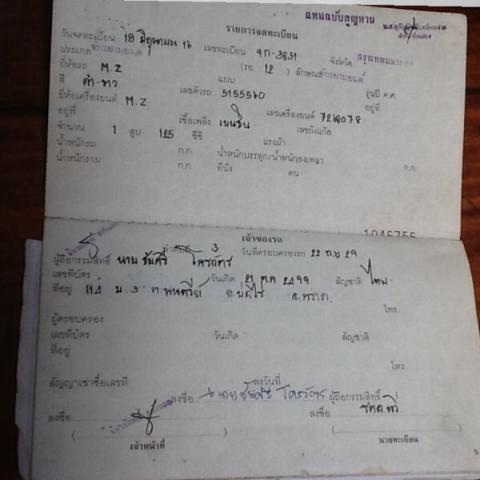 แทนฉบับสูญหาย
รายการจดทะเบียน
วันจดทะเบียน 18 มิถุนายน 16 เลขทะเบียน 9ก-3831 จังหวัด กรุงเทพมหานคร
ประเภท จักรยานยนต์ (รย. 12) ลักษณะ จักรยานยนต์
ยี่ห้อรถ M.Z แบบ รุ่นปี ค.ศ.
สี ดำ-ขาว เลขตัวรถ 5155560 อยู่ที่
ยี่ห้อเครื่องยนต์ M.Z เลขเครื่องยนต์ 7219078
อยู่ที่ เชื้อเพลิง เบนซิน เลขถังแก๊ส
จำนวน 1 สูบ 125 ซีซี แรงม้า
น้ำหนักรถ ก.ก. น้ำหนักบรรทุก/น้ำหนักลงเพลา ก.ก.
น้ำหนักรวม ก.ก. ที่นั่ง คน
เจ้าของรถ
ลำดับที่ 3 วันที่ครอบครองรถ 22 ก.ย 29
ผู้ถือกรรมสิทธิ์ นาย ชัยศรี
เลขที่บัตร วันเกิด 21 ต.ค 2499 สัญชาติ ไทย
ที่อยู่ 114 ม. 3
โทร.
ผู้ครอบครอง
เลขที่บัตร วันเกิด สัญชาติ
ที่อยู่
โทร.
สัญญาเช่าซื้อเลขที่ ลงวันที่
ลงชื่อ นายชัยศรี ผู้ถือกรรมสิทธิ์
ลงชื่อ ลงชื่อ
เจ้าหน้าที่ นายทะเบียน